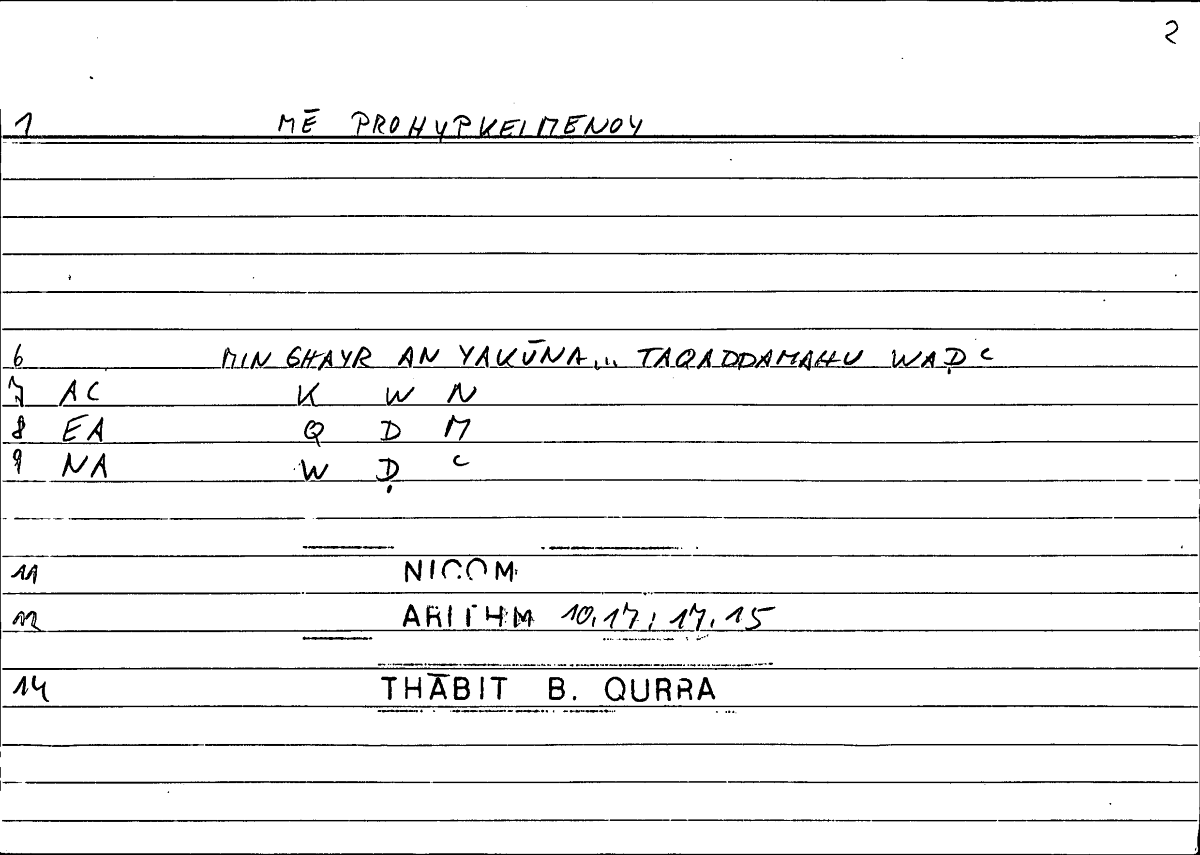 2
1 MĒ PROHYPKEIMENOY
6 MIN GHAYR AN YAKŪNA... TAQADDAMAHU WAḌ ͨ
7 AC K W N
8 EA Q D M
9 NA W Ḍ ͨ
11 NICOM
12 ARITHM 10,17; 17,15
14 THĀBIT B. QURRA